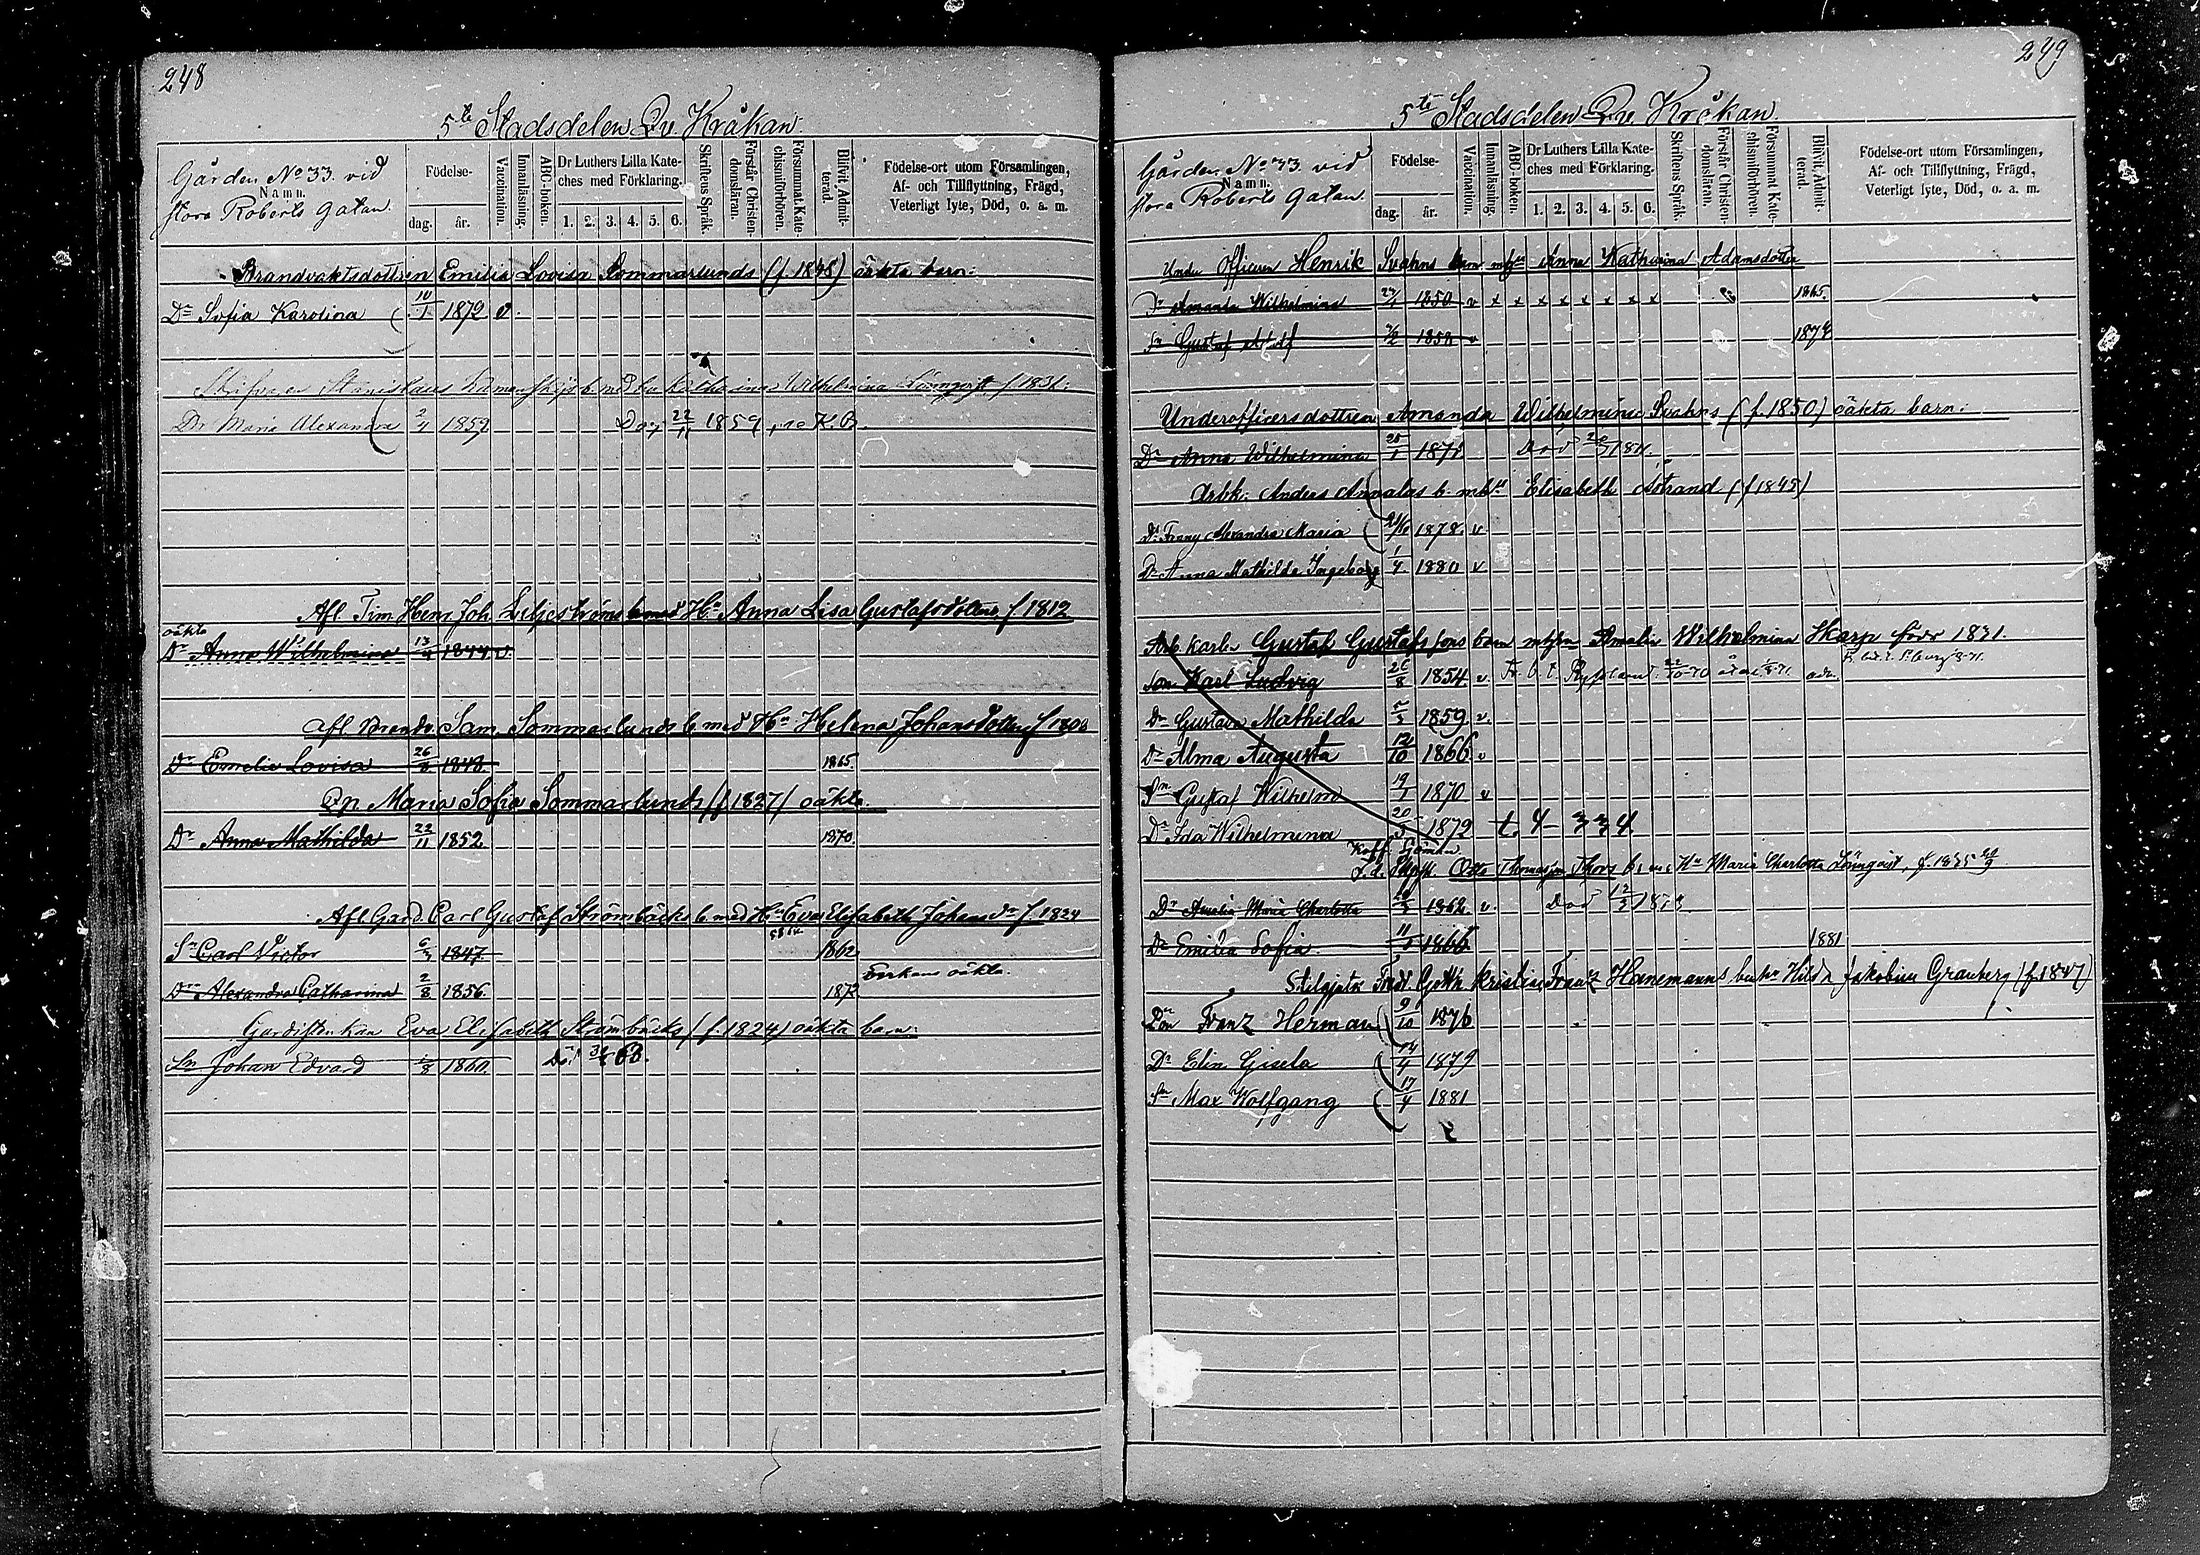 248
5te Stadsdelen Qv. Kråkan.
Gården No 33. vid
Namn.
stora Roberts gatan.
Födelse-
dag. år.
Vaccination.
Innanläsning.
ABC-boken.
Dr Luthers Lilla Kate-
ches med Förklaring.
1. 2. 3. 4. 5. 6.
Skriftens Språk.
Förstår Christen-
domsläran.
Försummat Kate-
chismiförhören.
Blivit Admit-
terad.
Födelse-ort utom Församlingen,
Af- och Tillflyttning, Frägd,
Veterligt lyte, Död, o. a. m.
Brandvaktsdottren Emilia Lovisa Sommarlunds (f. 1848) oäkta barn:
Dr Sofia Karolina 10/1 1872 v.
Wilhelmina f 1831.
Dr Maria Alexandra 2/4 1859 Dog 22/11 1859
Afl. Tim. Henr. Joh. Liljeströms barn med Ha Anna Lisa Gustafsdotter f 1812
oäkta
Dr Anna Wilhelmina 13/4 1844 v.
Afl. Brandv. Sam. Sommarlunds b. med Ha Helena Johansdotter f 1800
Dr Emelie Lovisa 26/8 1848. 1865.
Pn Maria Sofia Sommarlunds (f 1827) oäkta.
Dr Anna Mathilda 22/11 1852 1870.
Afl. Gard. Carl Gustaf Strömbäcks b. med Ha Eva Elisabeth Johansdr f. 1824
Sn Carl Victor 1847. 1862
Enkans oäkta.
Dr Alexandra Catharina 2/8 1856. 1872
Gardistenkan Eva Elisabeth Strömbäcks (f. 1824) oäkta barn:
Sn Johan Edvard 1860.
249
5te Stadsdelen Qv. Kråkan.
Gården No 33. vid
Namn.
stora Roberts gatan.
Födelse-
dag. år.
Vaccination.
Innanläsning.
ABC-boken.
Dr Luthers Lilla Kate-
ches med Förklaring.
1. 2. 3. 4. 5. 6.
Skriftens Språk.
Förstår Christen-
domsläran.
Försummat Kate-
chismiförhören.
Blivit Admit-
terad.
Födelse-ort utom Församlingen,
Af- och Tillflyttning, Frägd,
Veterligt lyte, Död, o. a. m.
Under Officeren Henrik Svahns barn Anna Katharina Adamsdotter
Dr Amanda Wilhelmina 1850 v x x x x x x x x 1865.
Sn Gustaf Adolf 1858 v 1874
Underofficersdottren Amanda Wilhelmina Svahns (f. 1850) oäkta barn:
Dr Anna Wilhelmina 25/1 1871 Död
Arbk. Anders Annalas b. Elisabeth Åstrand (f 1845)
Dr Fanny Alexandra Maria 1878. v
Dr Anna Mathilda Ingeborg 1/4 1880 v
Arb. karlen Gustaf Gustafssons barn Amalia Wilhelmina Skarp född 1831.
Son Karl Ludvig 26/8 1854 v.
Dr Gustava Mathilda 1859 v.
Dr Alma Augusta 12/10 1866 v
Sn Gustaf Wilhelm 1870 v
Dr Ida Wilhelmina 1872
Koff. Sjöman
Otto Thomasson Thors b. m. Ha Maria Charlotta Lönnqvist, f. 1835
Dr Amalia Maria Charlotta 1862 v. Död
Dr Emilia Sofia. 1866 1881
Kristian Franz Hanemanns Jakobina Granberg (f. 1847)
Son Franz Herman 9/10 1876
Dr Elin Gisela 14/4 1879
Sn Max Wolfgang 17/4 1881